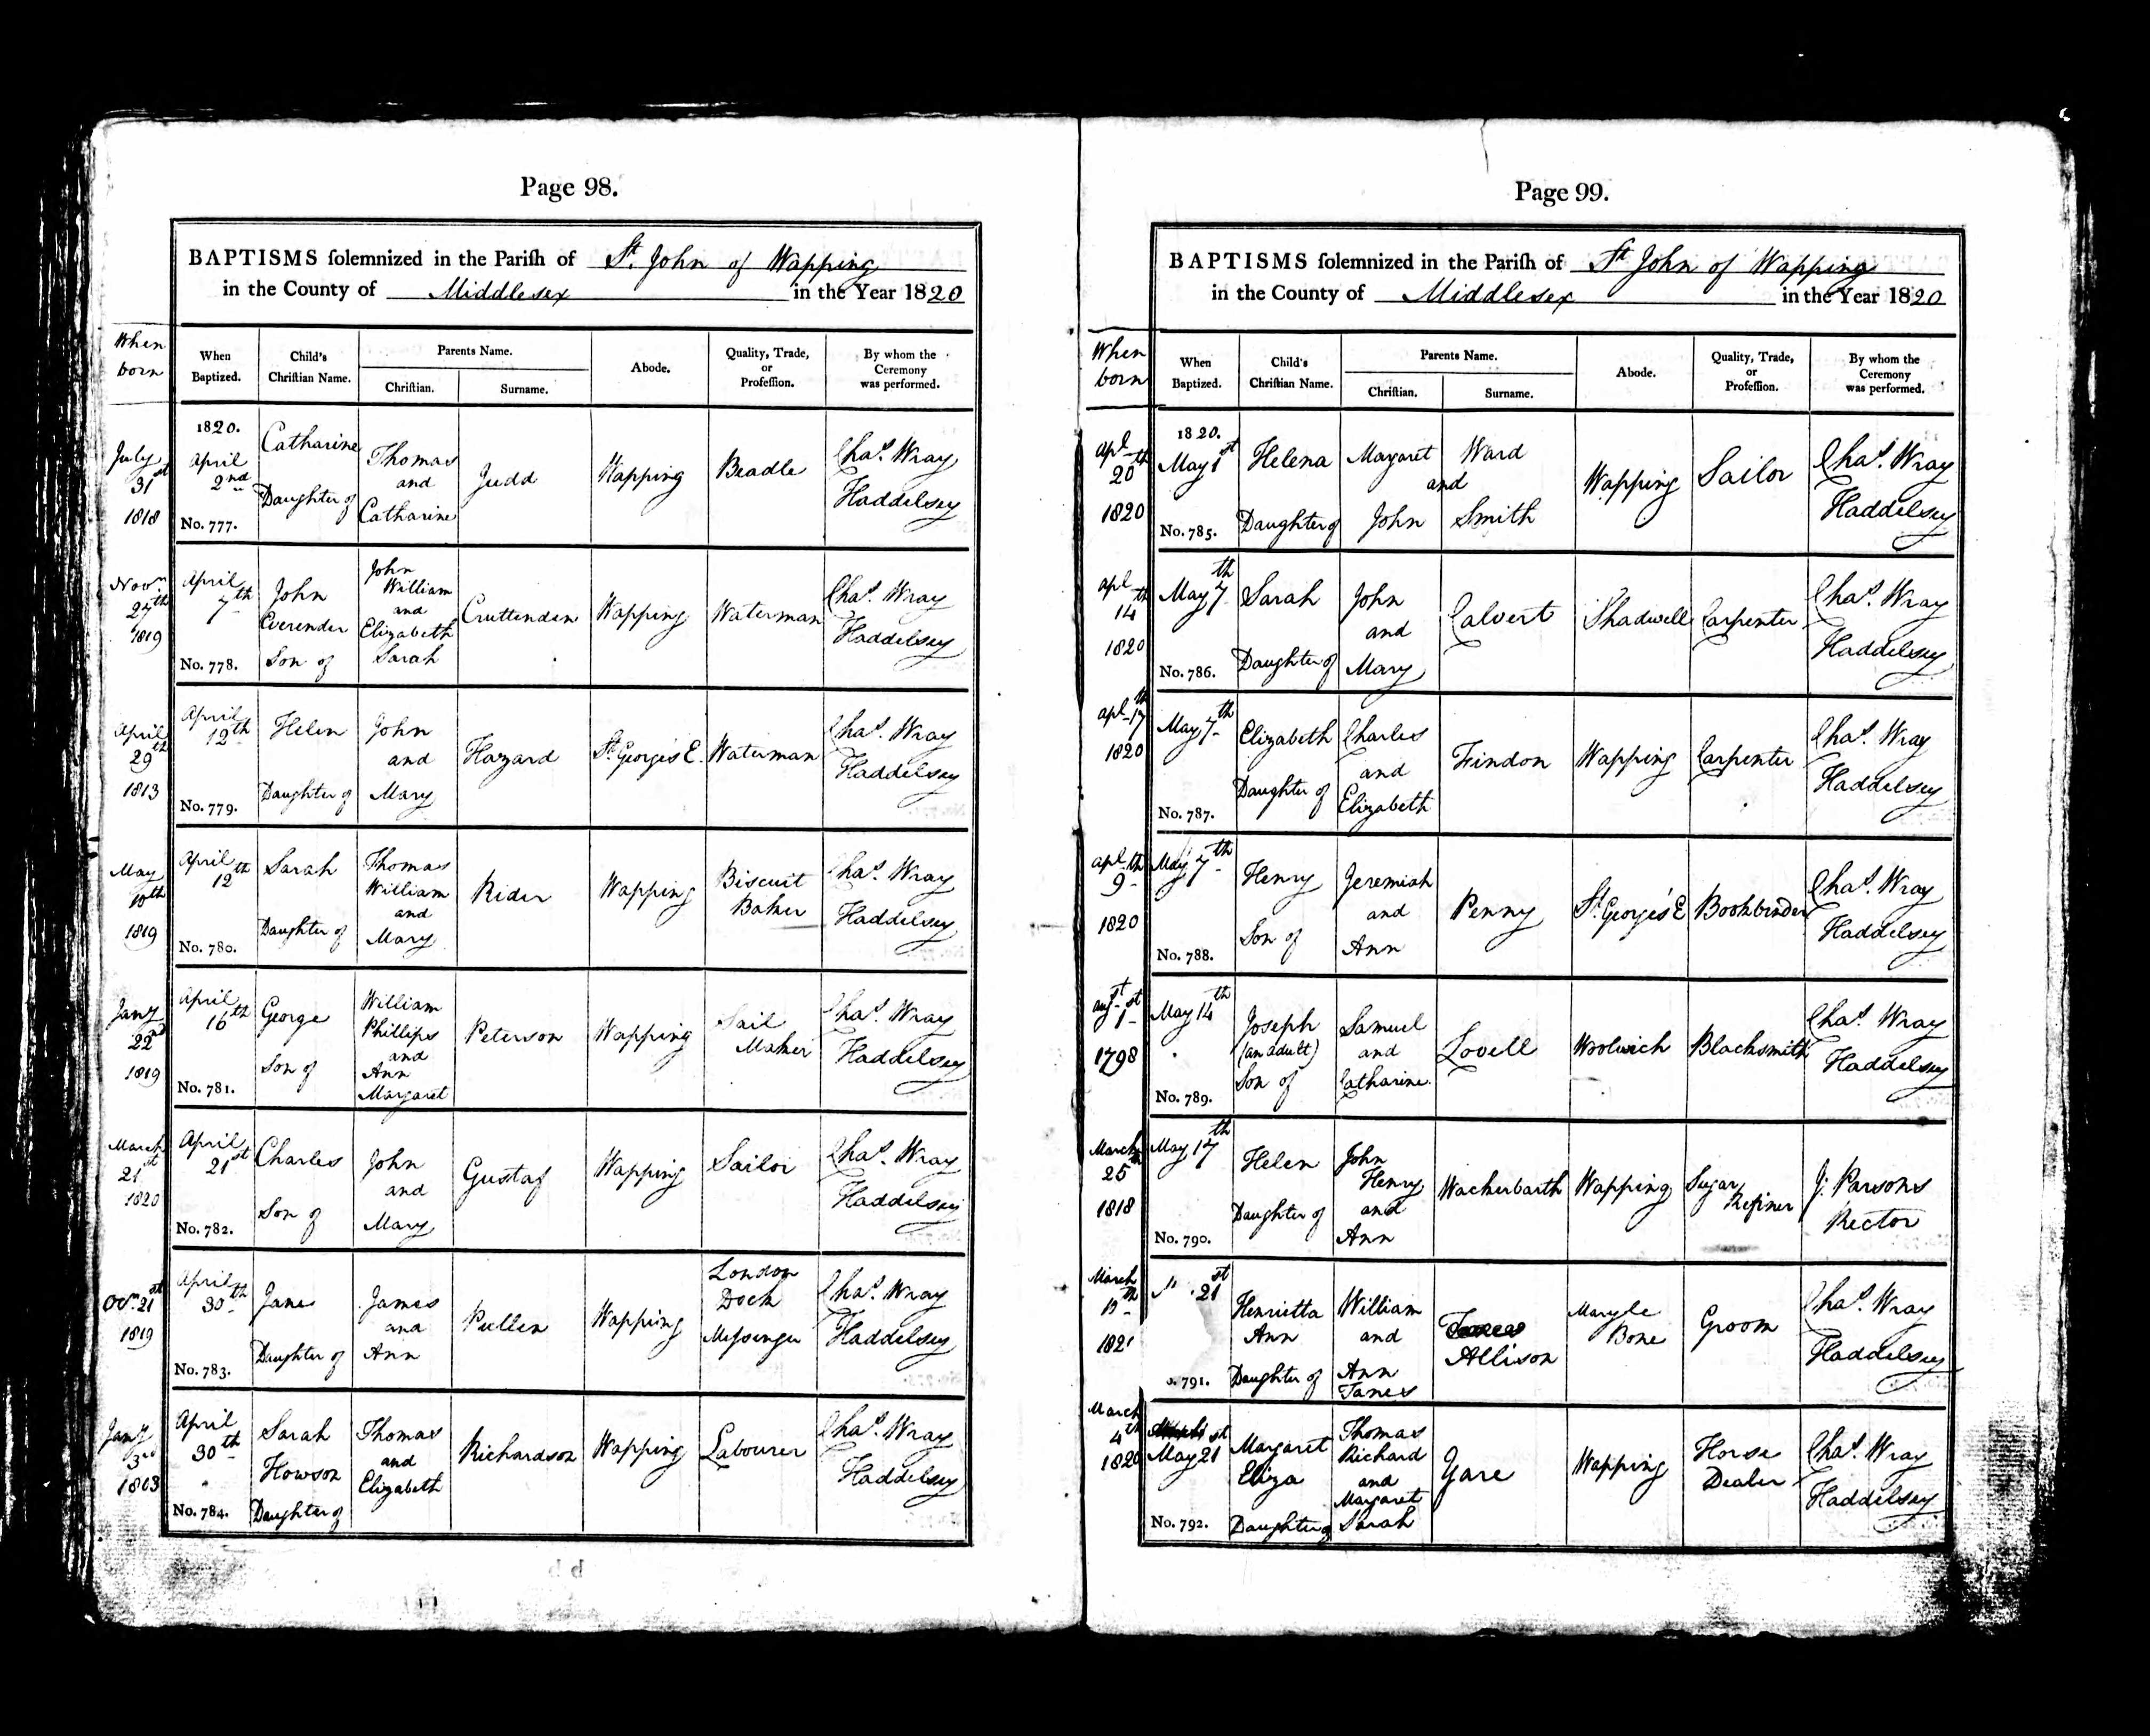 Page 98.
BAPTISMS solemnized in the Parish of St. John of Wapping
in the County of Middlesex in the Year 1820
When born
When Baptized.
Child's Christian Name.
Parents Name.
Christian.
Surname.
Abode.
Quality, Trade, or Profession.
By whom the Ceremony was performed.
July 31st 1818
1820. April 2nd
No. 777.
Catharine Daughter of
Thomas and Catharine
Judd
Wapping
Beadle
Chas. Wray Haddelsey
Novr. 27th 1819
April 7th
No. 778.
John Everenden Son of
John William and Elizabeth Sarah
Cruttenden
Wapping
Waterman
Chas. Wray Haddelsey
April 29th 1813
April 12th
No. 779.
Helen Daughter of
John and Mary
Hazard
St. George's E.
Waterman
Chas. Wray Haddelsey
May 10th 1819
April 12th
No. 780.
Sarah Daughter of
Thomas William and Mary
Rider
Wapping
Biscuit Baker
Chas. Wray Haddelsey
Jany 22nd 1819
April 16th
No. 781.
George Son of
William Phillips and Ann Margaret
Peterson
Wapping
Sail Maker
Chas. Wray Haddelsey
March 21st 1820
April 21st
No. 782.
Charles Son of
John and Mary
Gustaf
Wapping
Sailor
Chas. Wray Haddelsey
21st 1819
April 30th
No. 783.
Jane Daughter of
James and Ann
Pullen
Wapping
London Dock Messenger
Chas. Wray Haddelsey
Jany 3rd
April 30th
No. 784.
Sarah Howson Daughter of
Thomas and Elizabeth
Richardson
Wapping
Labourer
Chas. Wray Haddelsey
Page 99.
BAPTISMS solemnized in the Parish of St John of Wapping
in the County of Middlesex in the Year 1820
When born
When Baptized.
Child's Christian Name.
Parents Name.
Christian.
Surname.
Abode.
Quality, Trade, or Profession.
By whom the Ceremony was performed.
Apl 20th 1820
1820. May 1st
No. 785.
Helena Daughter of
Margaret Ward
and
John Smith
Wapping
Sailor
Chas. Wray Haddelsey
Apl 14th 1820
May 7th
No. 786.
Sarah Daughter of
John and Mary
Calvert
Shadwell
Carpenter
Chas. Wray Haddelsey
Apl 17th 1820
May 7th
No. 787.
Elizabeth Daughter of
Charles and Elizabeth
Findon
Wapping
Carpenter
Chas. Wray Haddelsey
Apl 9th 1820
May 7th
No. 788.
Henry Son of
Jeremiah and Ann
Penny
St. George's E
Bookbinder
Chas. Wray Haddelsey
Augst 1st 1798
May 14th
No. 789.
Joseph (an adult) Son of
Samuel and Catharine.
Lovell
Woolwich
Blacksmith
Chas. Wray Haddelsey
March 25 1818
May 17th
No. 790.
Helen Daughter of
John Henry and Ann
Wackerbarth
Wapping
Sugar Refiner
J. Parsons Rector
March
21st
791.
Henrietta Ann Daughter of
William and Ann Janes
Allison
Maryle Bone
Groom
Chas. Wray Haddelsey
March 4th 1820
May 21st
No. 792.
Margaret Eliza Daughter of
Thomas Richard and Margaret Sarah
Gare
Wapping
Horse Dealer
Chas. Wray Haddelsey